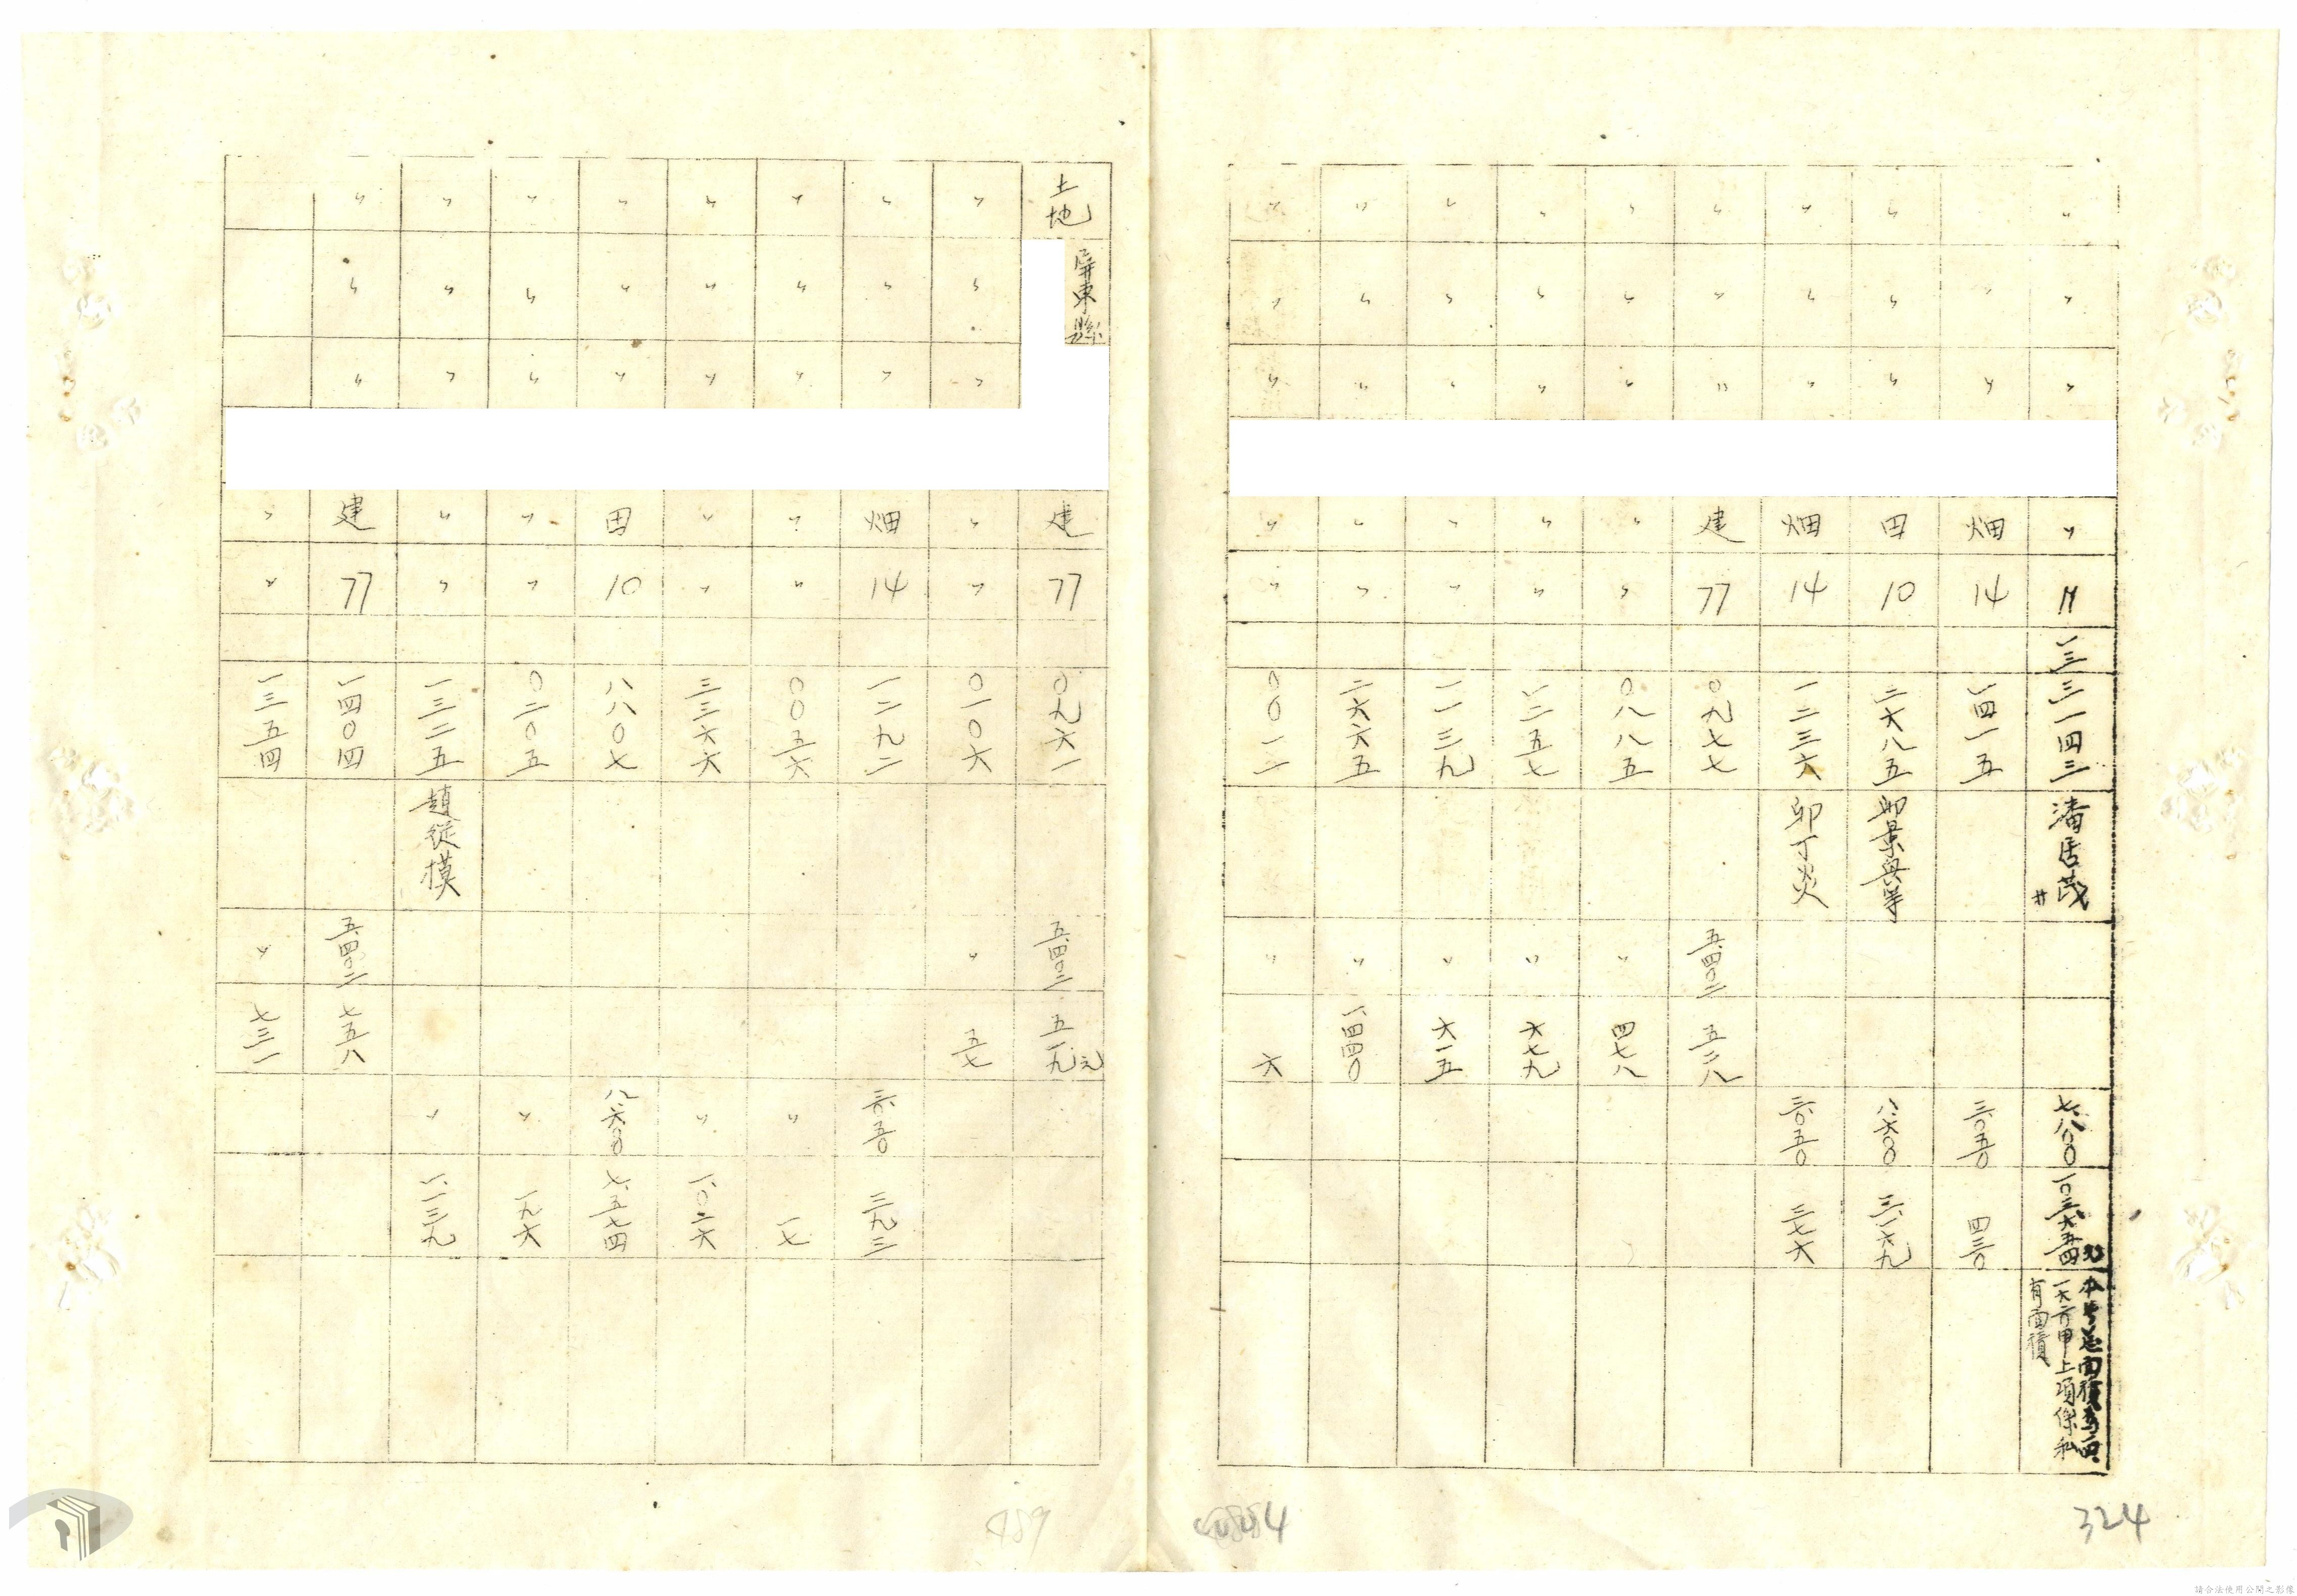 〃 〃 〃 〃 〃 一三三一四三 潘居茂 廿 七、八〇〇 一〇三、六五四元 有面積
〃 畑 14 一四一五 三、〇五〇 四三〇
〃 〃 〃 田 10 三六八五 八、六〇〇 三、一六九
〃 〃 〃 畑 14 一二三六 卯丁炎 三、〇五〇 三七六
〃 〃 〃 建 77 〇九七七 五、四〇二 五二八
〃 〃 〃 〃 〃 〇八八五 〃 四七八
〃 〃 〃 〃 〃 一二五七 〃 六七九
〃 〃 〃 〃 〃 一一三九 〃 六一五
〃 〃 〃 〃 〃 二六六五 〃 一、四四〇
〃 〃 〃 〃 〃 〇〇一一 〃 六
土地 屏東縣 建 77 〇九六一 五、四〇二 五一九元
〃 〃 〃 〃 〃 〇一〇六 〃 五七
〃 〃 〃 畑 14 一二九二 三、〇五〇 三九三
〃 〃 〃 〃 〃 〇〇五六 〃 一七
〃 〃 〃 〃 〃 三三六六 〃 一、〇二六
〃 〃 〃 田 10 八八〇七 八、六〇〇 七、五七四
〃 〃 〃 〃 〃 〇二〇五 〃 一九六
〃 〃 〃 〃 〃 一三二五 趙從模 〃 一、一三九
〃 〃 〃 建 77 一四〇四 五、四〇二 七五八
〃 〃 一三五四 〃 七三一
324
489
請合法使用公開之影像